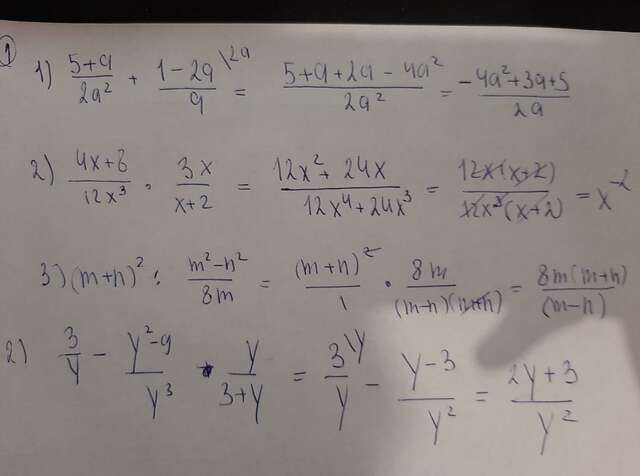 ①
1) (5+a)/(2a²) + (1-2a)/a \2a = (5+a+2a-4a²)/(2a²) = (-4a²+3a+5)/(2a)
2) (4x+8)/(12x³) · (3x)/(x+2) = (12x²+24x)/(12x⁴+24x³) = (12x(x+2))/(12x³(x+2)) = x⁻²
3) (m+n)² : (m²-n²)/(8m) = (m+n)²/1 · (8m)/((m-n)(m+n)) = (8m(m+n))/((m-n))
2) 3/y - (y²-9)/(y³) · y/(3+y) = 3\y/y - (y-3)/(y²) = (2y+3)/(y²)